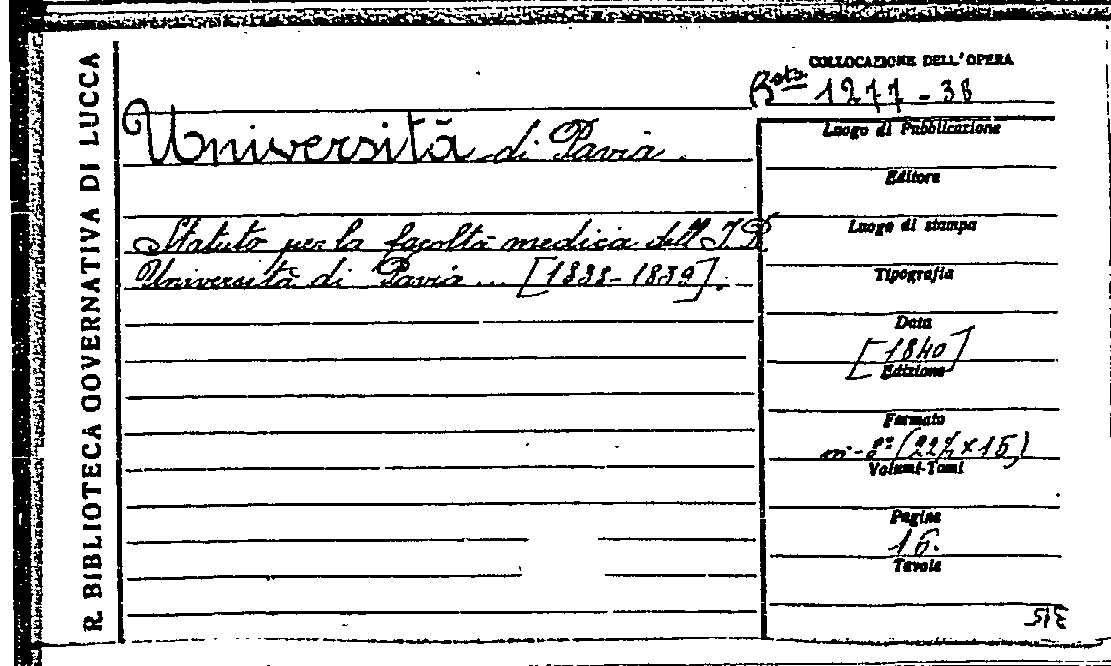 R. BIBLIOTECA GOVERNATIVA DI LUCCA
COLLOCAZIONE DELL'OPERA
Bta. 1277-38
Università di Pavia.
Statuto per la facoltà medica dell I. R
Università di Pavia ... [1838-1839].
Luogo di Pubblicazione
Editore
Luogo di stampa
Tipografia
Data
[1840]
Edizione
Formato
in-8º (22½×15)
Volumi-Tomi
Pagine
16.
Tavole